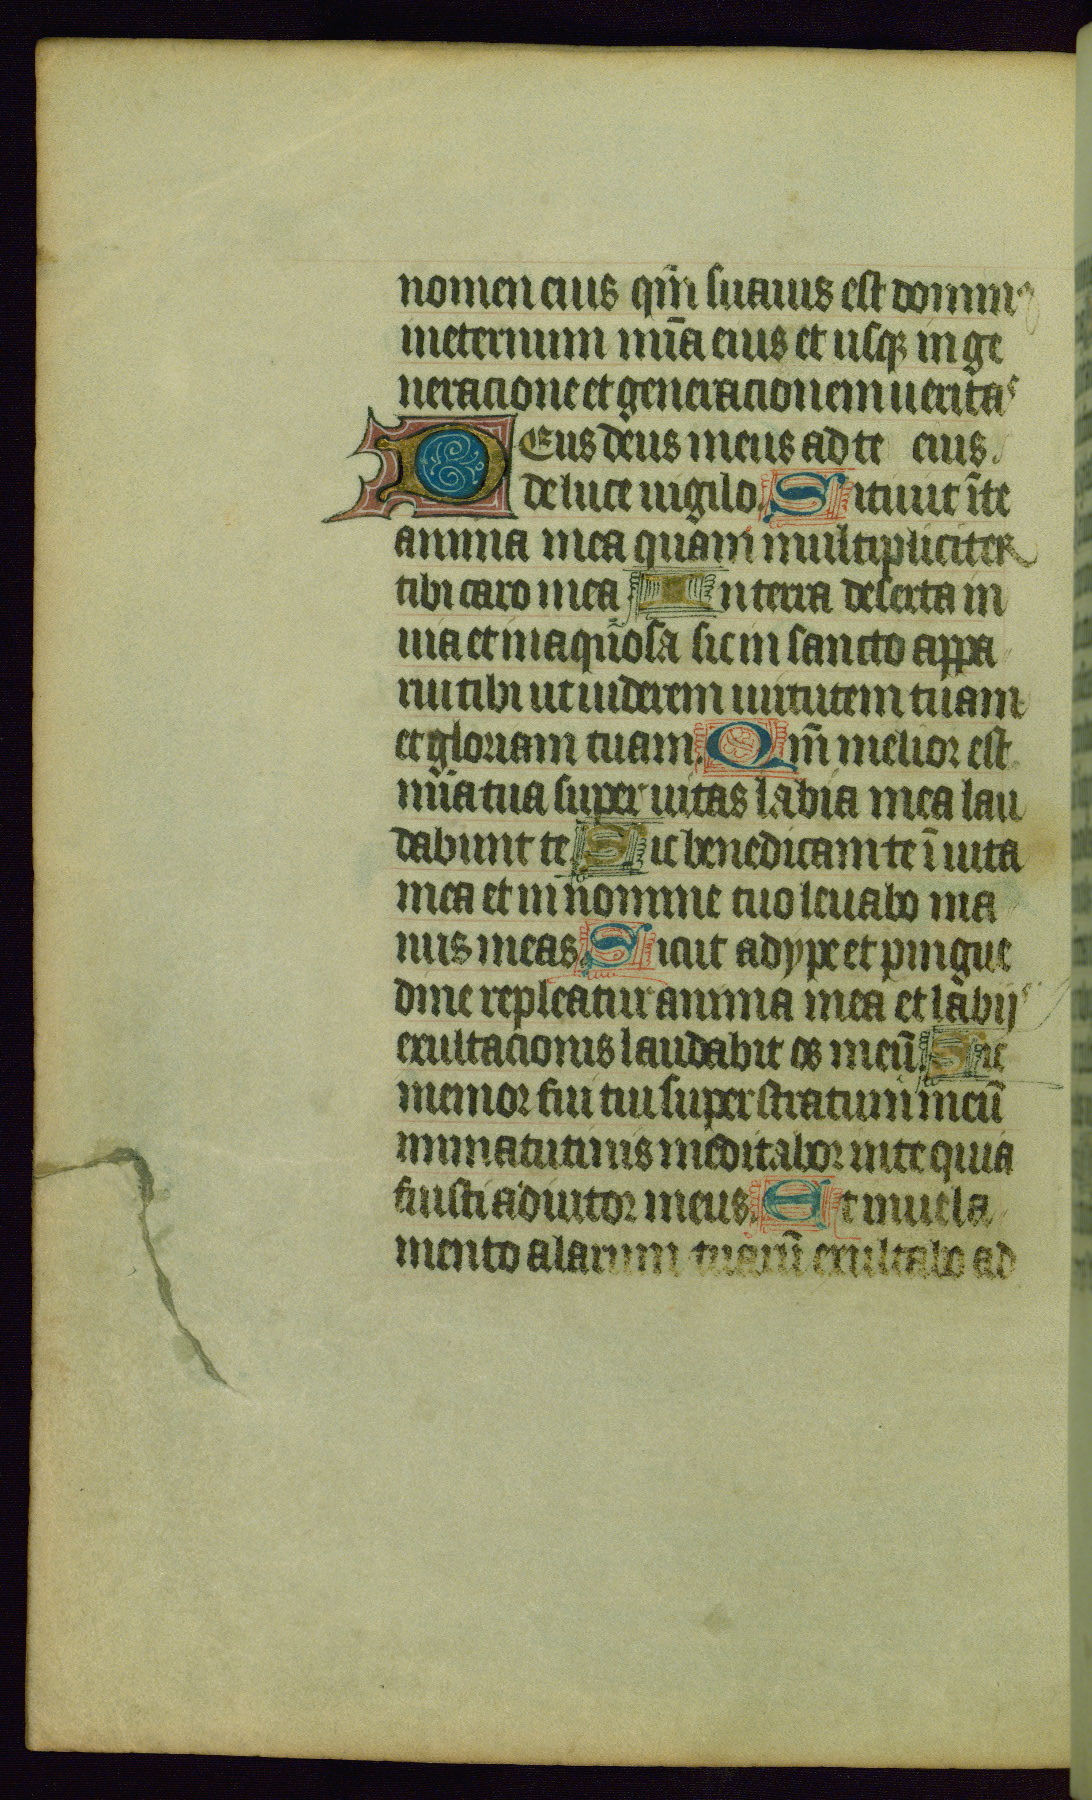 nomen eius qm̄ suauis est domin⁹
ineternum mīa eius et usqꝫ in ge
neracione et generacionem ueritas
Deus deus meus ad te eius.
de luce uigilo. Sitiuit ī te
anima mea quam multipliciter
tibi caro mea In terra deserta in
uia et inaquosa sic in sancto appa
rui tibi ut uiderem uirtutem tuam
et gloriam tuam. Qm̄ melior est
mīa tua super uitas labia mea lau
dabunt te. Sic benedicam te ī uita
mea et in nomine tuo leuabo ma
nus meas. Sicut adype et pingue
dine repleatur anima mea et labijs
exultacionis laudabit os meū. Sic
memor fui tui super stratum meū
in matutinis meditabor in te quia
fuisti adiutor meus. Et in uela
mento alarum tuarū exultabo ad